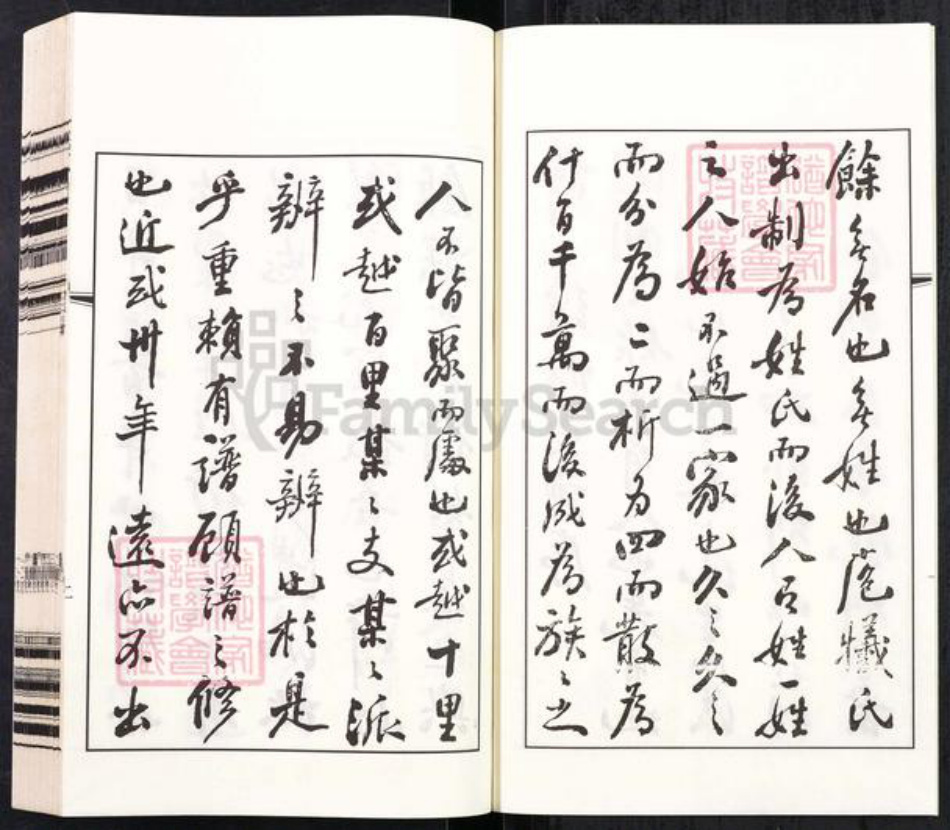 餘無名也無姓也庖犧氏
出制為姓氏而後人有姓一姓
之人始不過一家也久之久之
而分為二而析為四而散為
什百千萬而後成為族之
人不皆聚而處也或越十里
或越百里某〻支某〻派
辨之不易辨也於是
乎重賴有譜顧譜之修
也近或卅年遠亦不出
FamilySearch